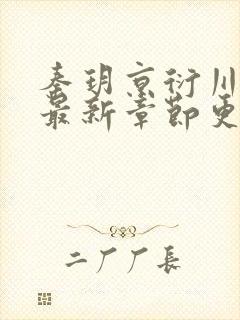 秦玥京衍川
最新章节更
二厂厂长